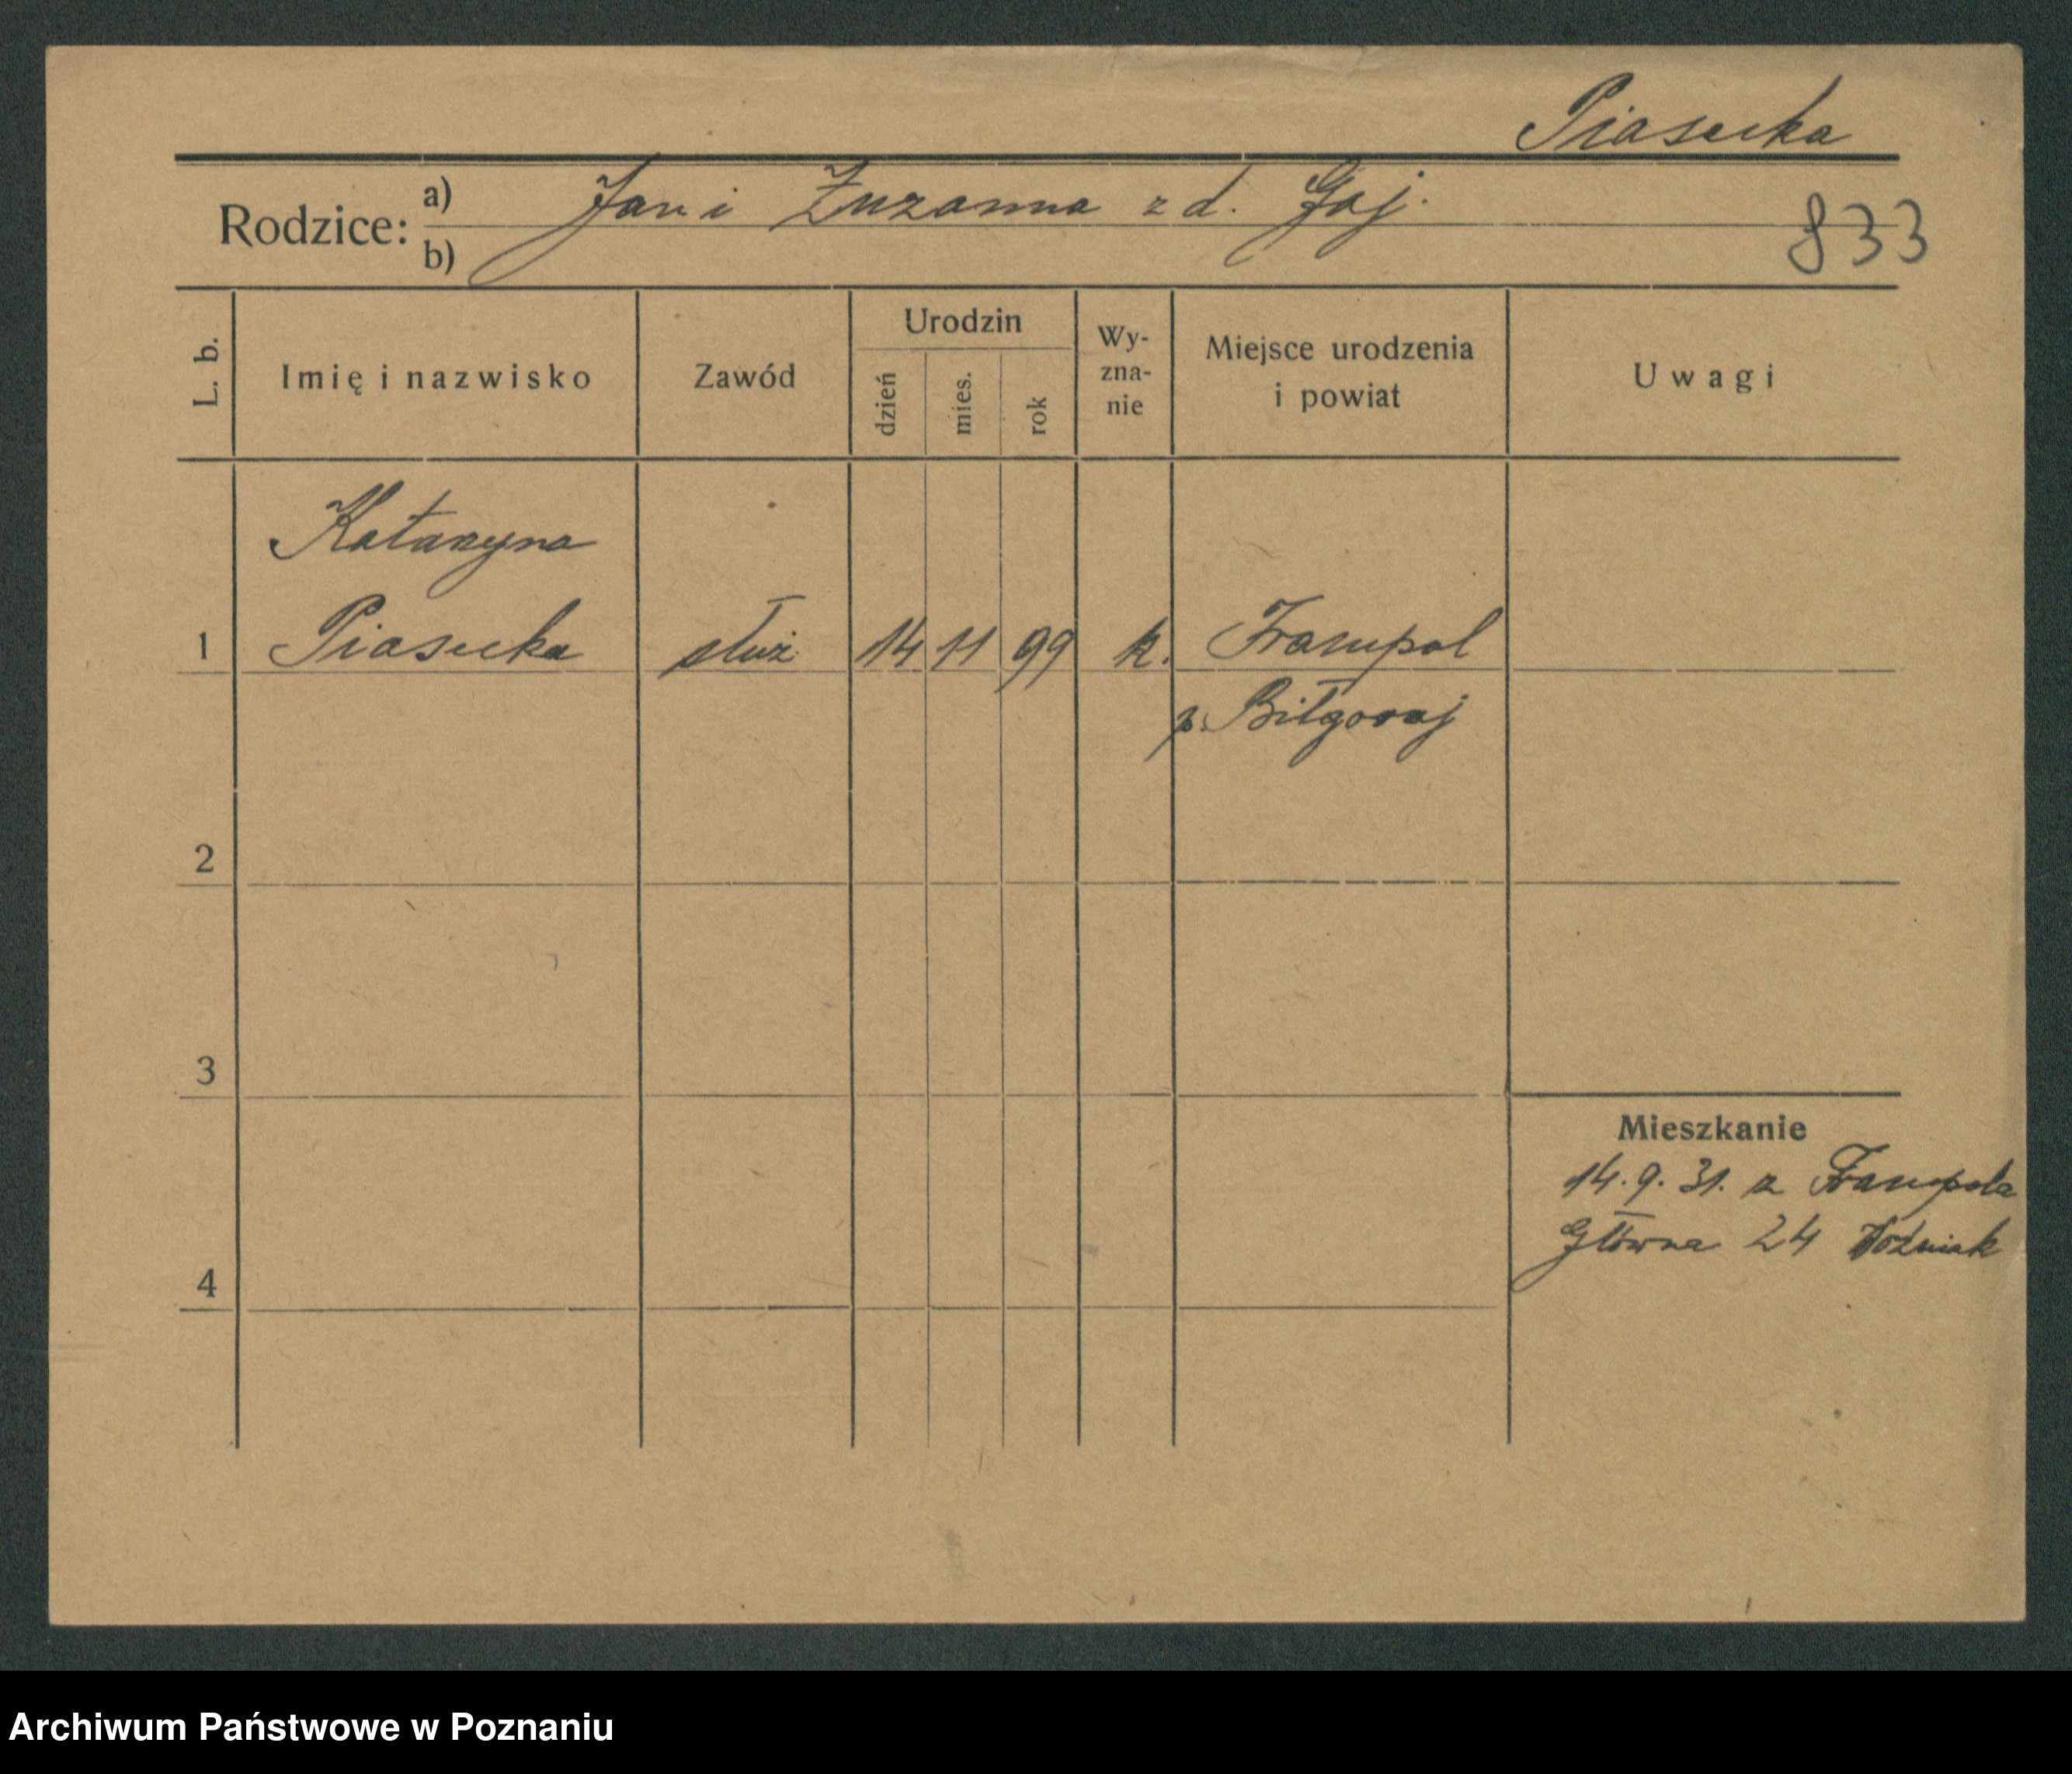 Piasecka
Rodzice: a) Jan i Zuzanna z d. Gaj.
b)
833
L. b.
Imię i nazwisko
Zawód
Urodzin
dzień
mies.
rok
Wy-
zna-
nie
Miejsce urodzenia
i powiat
Uwagi
Katarzyna
1 Piasecka służ 14 11 99 k. Frampol
p. Biłgoraj
2
3
Mieszkanie
14.9.31. z Frampola
Główna 24 Woźniak
4
Archiwum Państwowe w Poznaniu